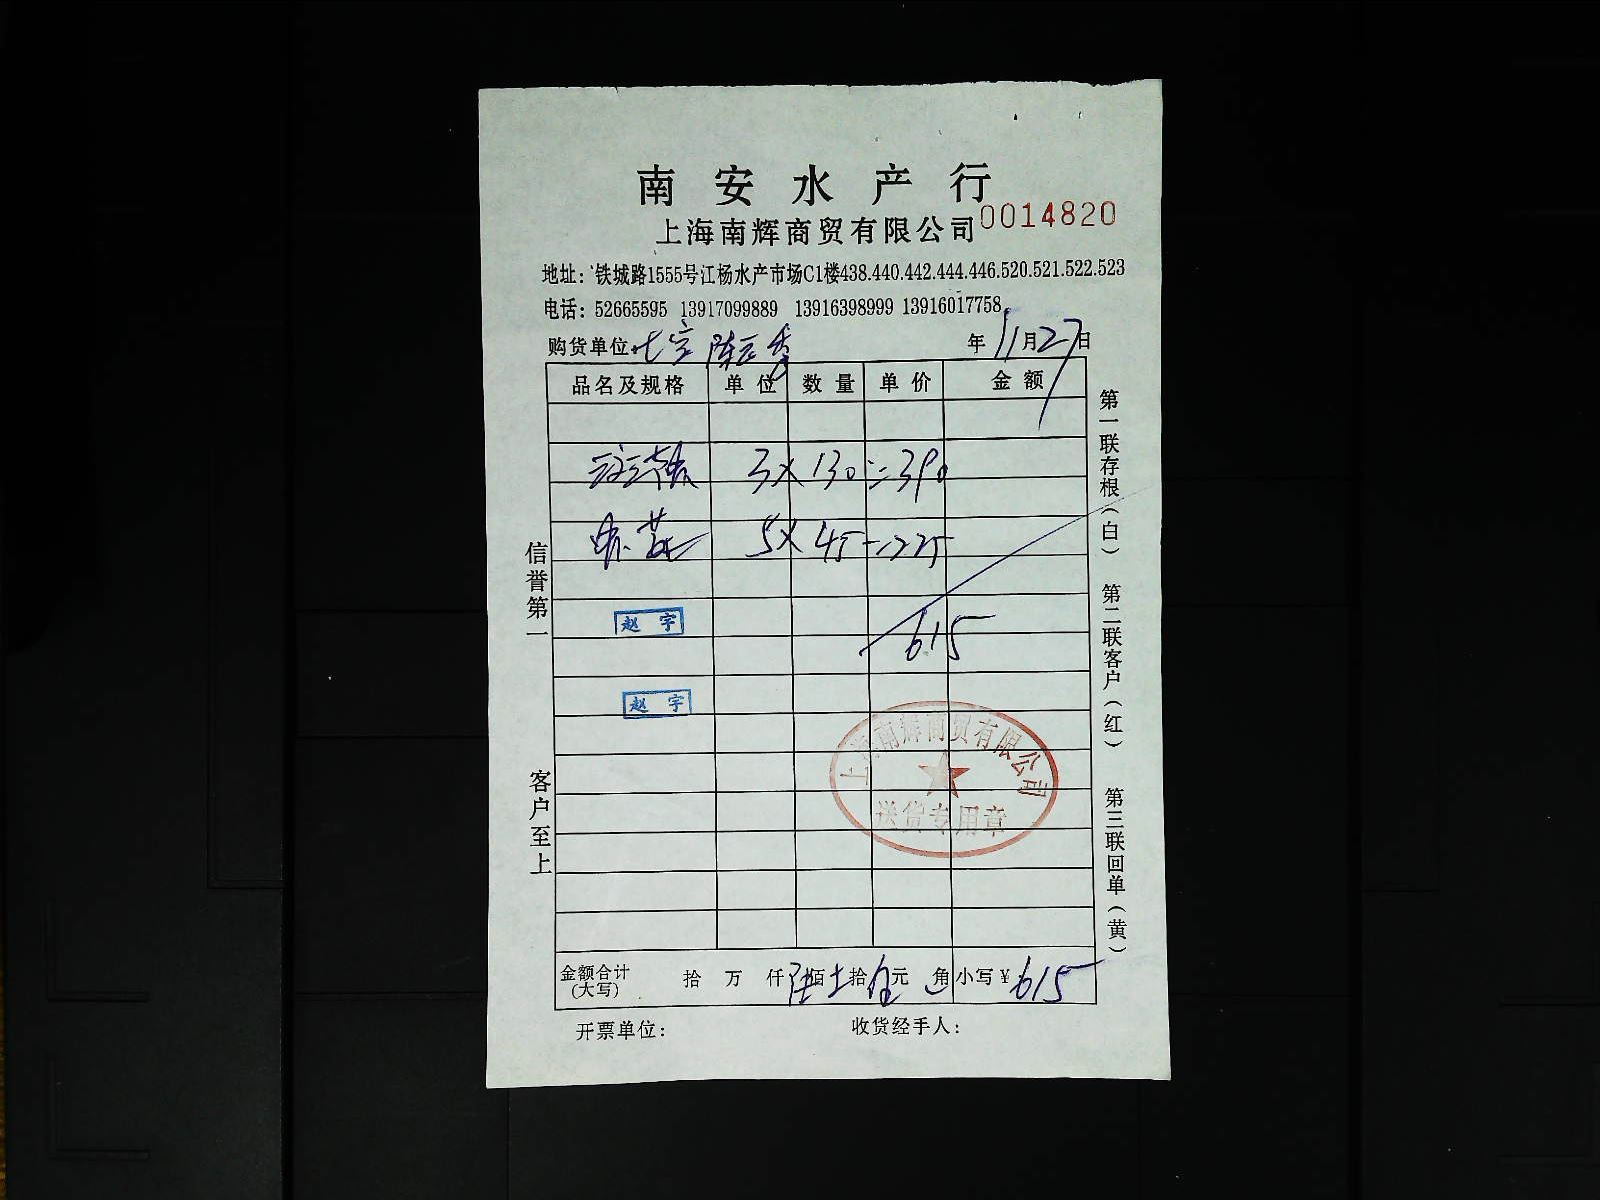 南安水产行
上海南辉商贸有限公司 0014820
地址：铁城路1555号江杨水产市场C1楼438.440.442.444.446.520.521.522.523
电话：52665595 13917099889 13916398999 13916017758
购货单位 年 11月27日
品名及规格 单位 数量 单价 金额
3×130=390
5×45=225
615
赵宇
赵宇
上海南辉商贸有限公司
送货专用章
金额合计(大写) 拾 万 仟 陆佰 拾 伍元 角 小写￥615
开票单位： 收货经手人：
信誉第一
客户至上
第一联存根(白) 第二联客户(红) 第三联回单(黄)